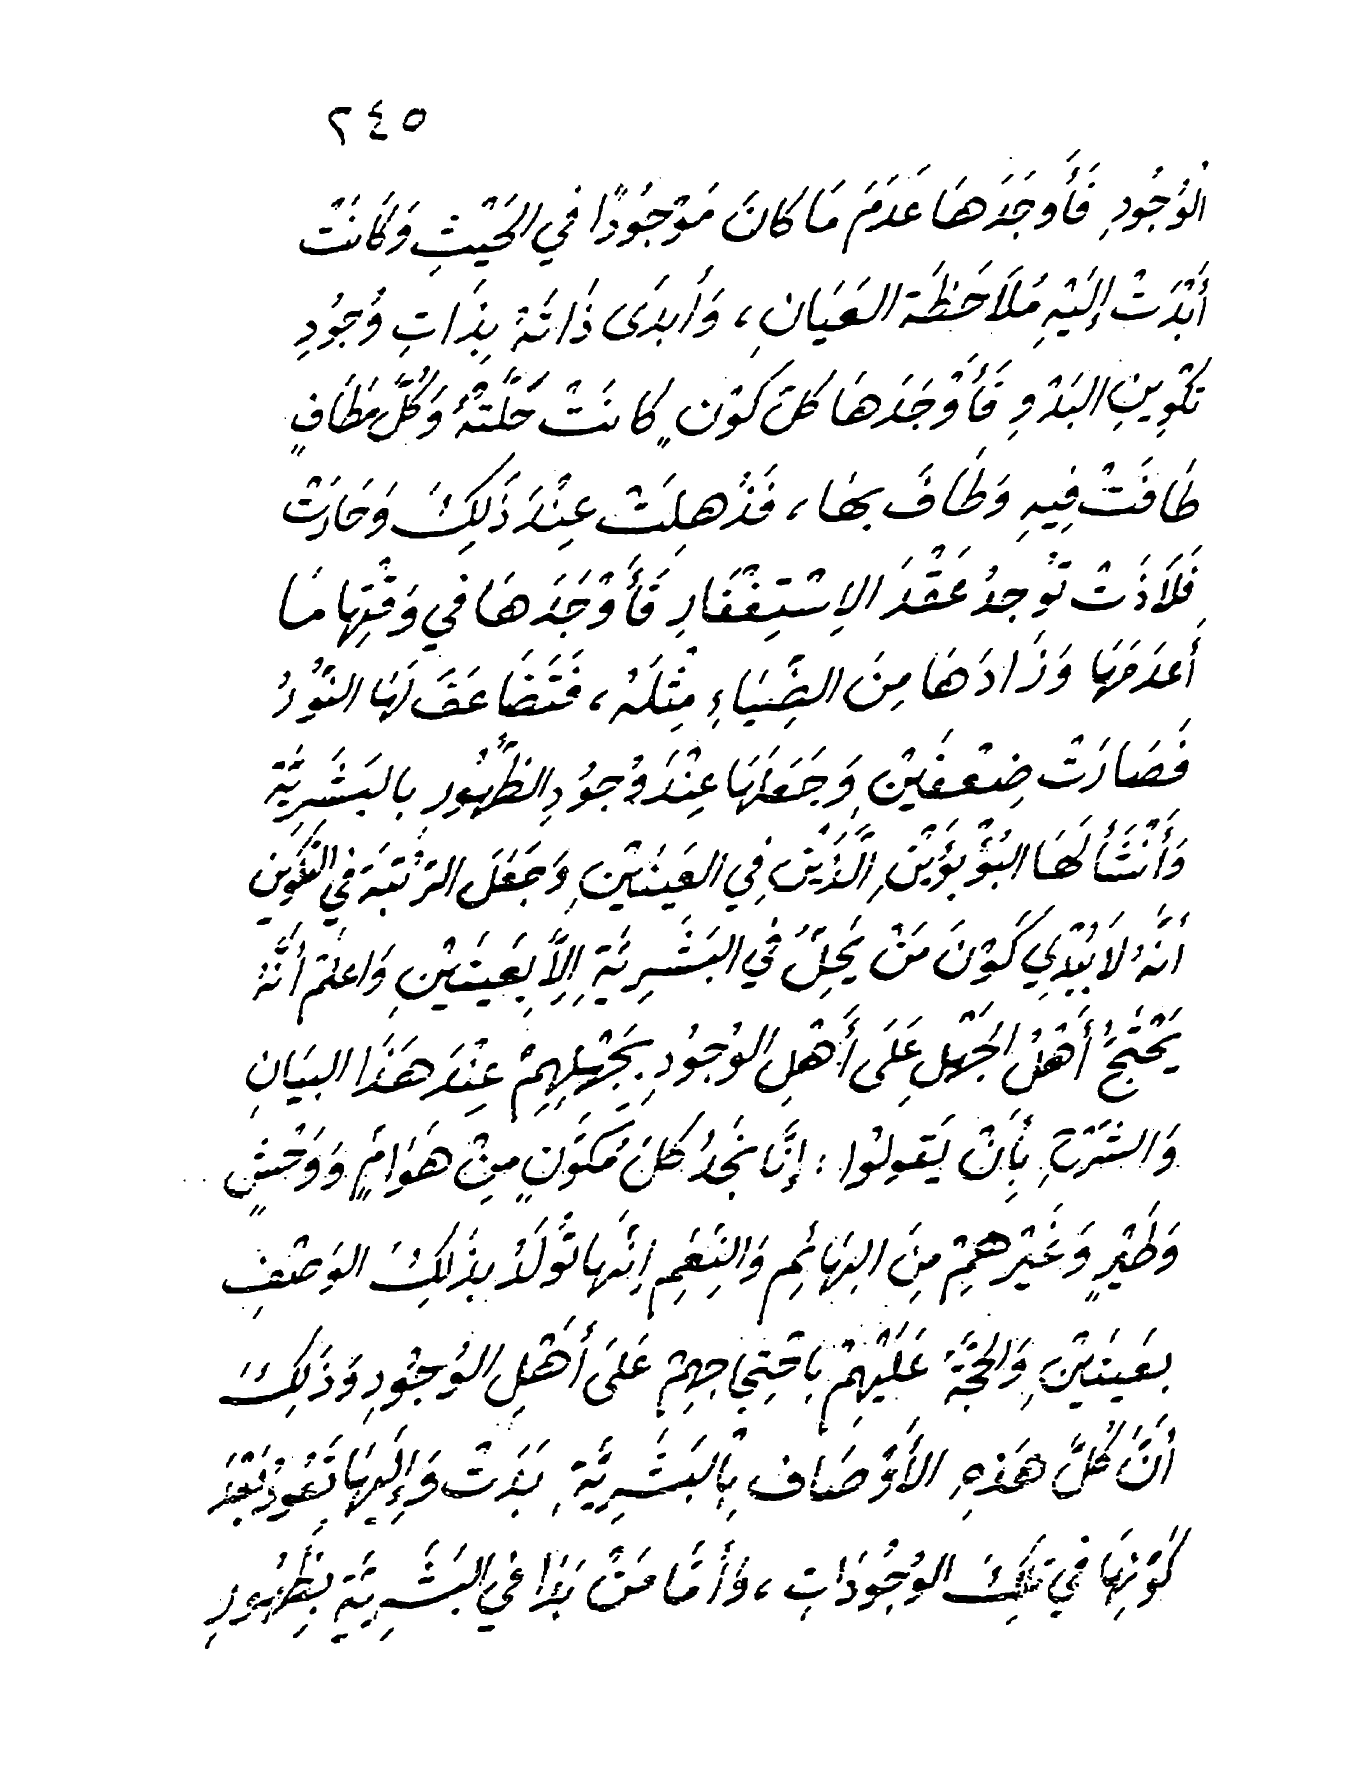 ٢٤٥
الوُجُودِ فَأَوجَدَهَا عَدَمَ مَا كَانَ مَوْجُودًا فِي الحَيْثِ وَكَانَتْ
أَبْدَتْ إِلَيْهِ مُلَاحَظَةَ العَيَانِ، وَأَبدَى ذَاتَهُ بِذَاتِ وُجُودِ
تَكْوِينِ البَدْوِ فَأَوْجَدَهَا كلَّ كَوْنٍ كَانَتْ حَلَّتْهُ وَكُلَّ مَطَافٍ
طَافَتْ فِيهِ وَطَافَ بِهَا، فَذَهِلَتْ عِنْدَ ذَلِكَ وَحَارَتْ
فَلَاذَتْ تُوجِدُ عَقْدَ الِاسْتِغْفَارِ فَأَوْجَدَهَا فِي وَقْتِهَا مَا
أَعدَمَهَا وَزَادَهَا مِنَ الضِّيَاءِ مِثْلَهُ، فَتَضَاعَفَ لَهَا النُّورُ
فَصَارَتْ ضِعْفَيْنِ وَجَعَلَهَا عِنْدَ وُجُودِ الظُّهُورِ بِالبَشَرِيَّةِ
وَأَنْشَأَ لَهَا البُؤْبُؤَيْنِ الَّذَيْنِ فِي العَيْنَيْنِ وَجَعَلَ الرُّتْبَةَ فِي التَّكْوِينِ
أنَّهُ لَا يُبْدِي كَوْنَ مَنْ يَحِلُّ فِي البَشَرِيَّةِ إِلَّا بِعَيْنَيْنِ وَاعلَمْ أَنَّهُ
يَحْتَجُّ أَهْلُ الجَهْلِ عَلَى أَهْلِ الوُجُودِ بِجَهْلِهِمْ عِنْدَ هَذَا البيَانِ
وَالشَّرْحِ بِأَنْ يَقُولُوا: إِنَّا نَجِدُ كُلَّ مُكَوَّنٍ مِنْ هَوَامٍّ وَوَحْشٍ
وَطَيْرٍ وَغَيْرِهِمْ مِنَ البَهَائِمِ وَالنِّعَمِ إنَّهَا تُولَدُ بِذَلِكَ الوَصْفِ
بِعَيْنَيْنِ وَالحُجَّةُ عَلَيْهِمْ بِاحْتِجَاجِهِمْ عَلَى أَهْلِ الوُجُودِ وَذَلِكَ
أنَّ كُلَّ هَذِهِ الأَوْصَافِ بِالبَشَرِيَّةِ بَدَتْ وَإِلَيْهَا تَعُودُ بَعْدَ
كَوْنِهَا فِي تِلْكَ الوُجُودَاتِ، وَأَمَّا مَنْ بَدَا فِي البَشَرِيَّةِ بِظُهُورِ